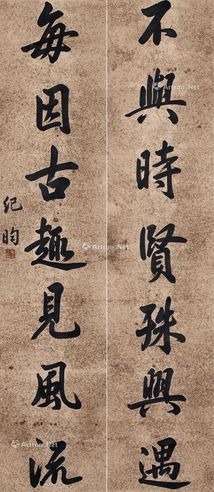 不與時賢殊興遇
每因古趣見風流
紀昀
Artron.Net
Artron.Net
Artron.Net
Artron.Net